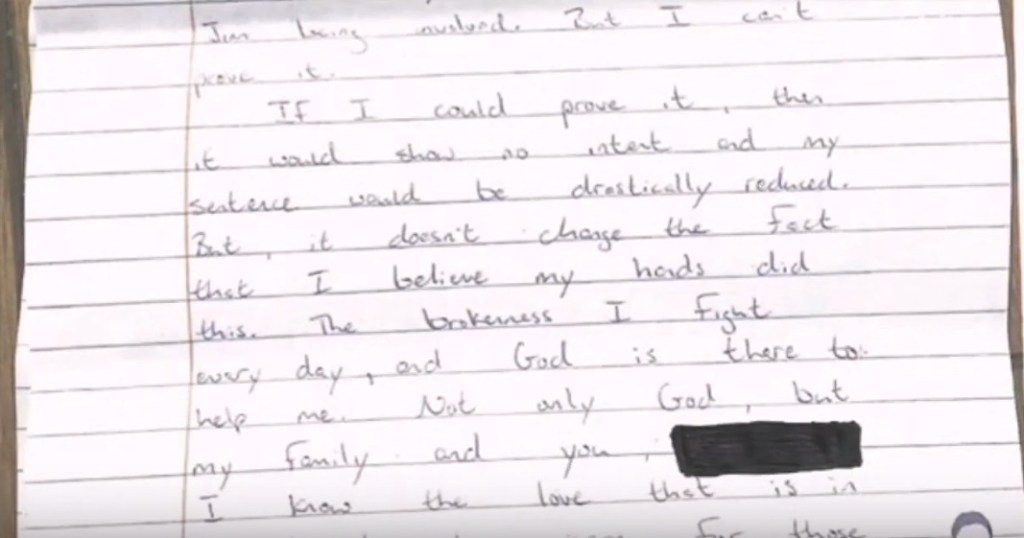 Jim being involved. But I can't
prove it.
If I could prove it, then
it would show no intent and my
sentence would be drastically reduced.
But, it doesn't change the fact
that I believe my hands did
this. The brokeness I fight
every day, and God is there to
help me. Not only God, but
my family and you,
I know the love that is in
for those